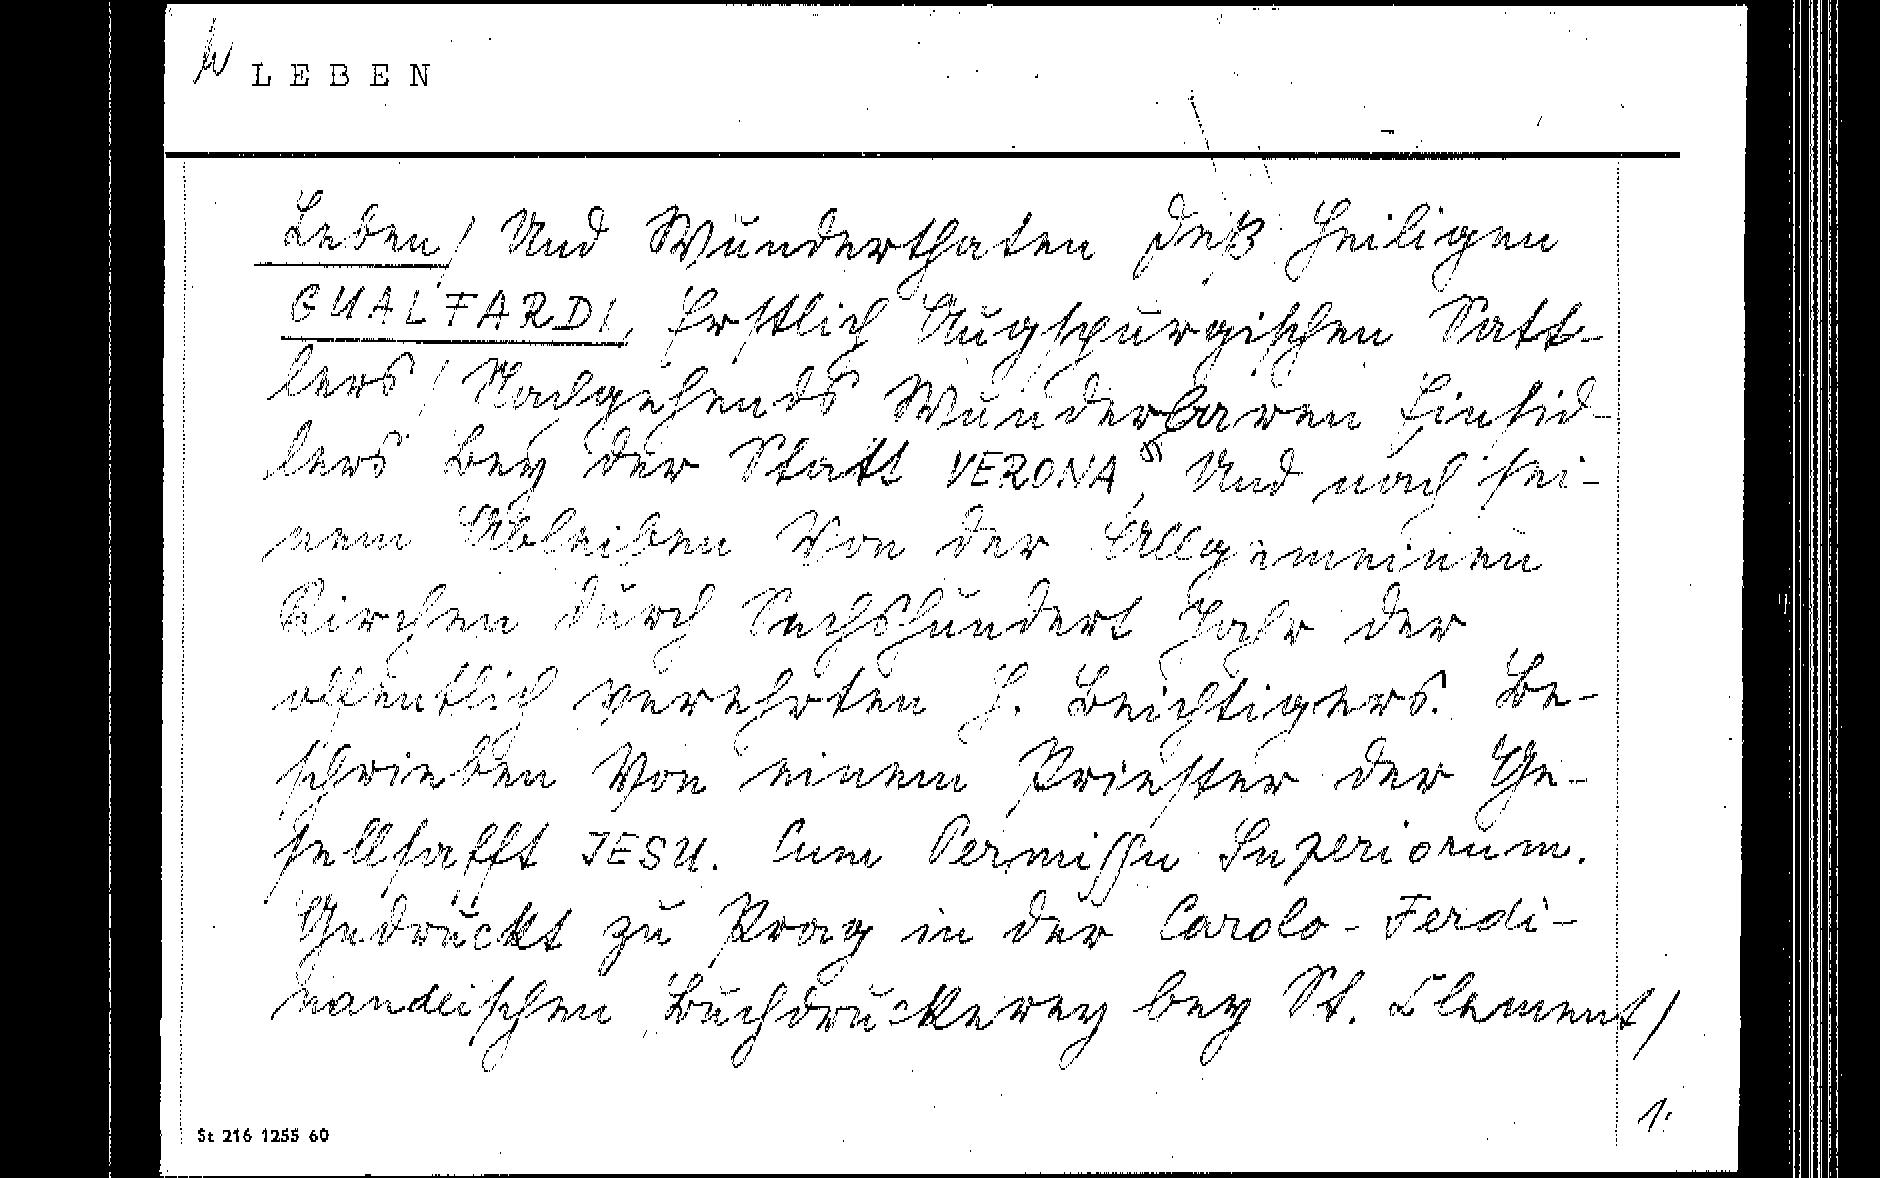 LEBEN
Leben/ Und Wunderthaten deß Heiligen
GUALFARDI, Erstlich Augspurgischen Satt-
lers/ Nachgehends Wunderbaren Einsid-
lers Bey der Statt VERONA, Und nach sei-
nem Ableiben Von der Allgemeinen
Kirchen durch Sechshundert Jahr der
offentlich verehrten H. Beichtigers. Be-
schrieben Von einem Priester der Ge-
sellsafft JESU. Cum Permissu Superiorum.
Gedruckt zu Prag in der Carolo-Ferdi-
nandeischen Buchdruckerey bey St. Clement/
1.
St 216 1255 60